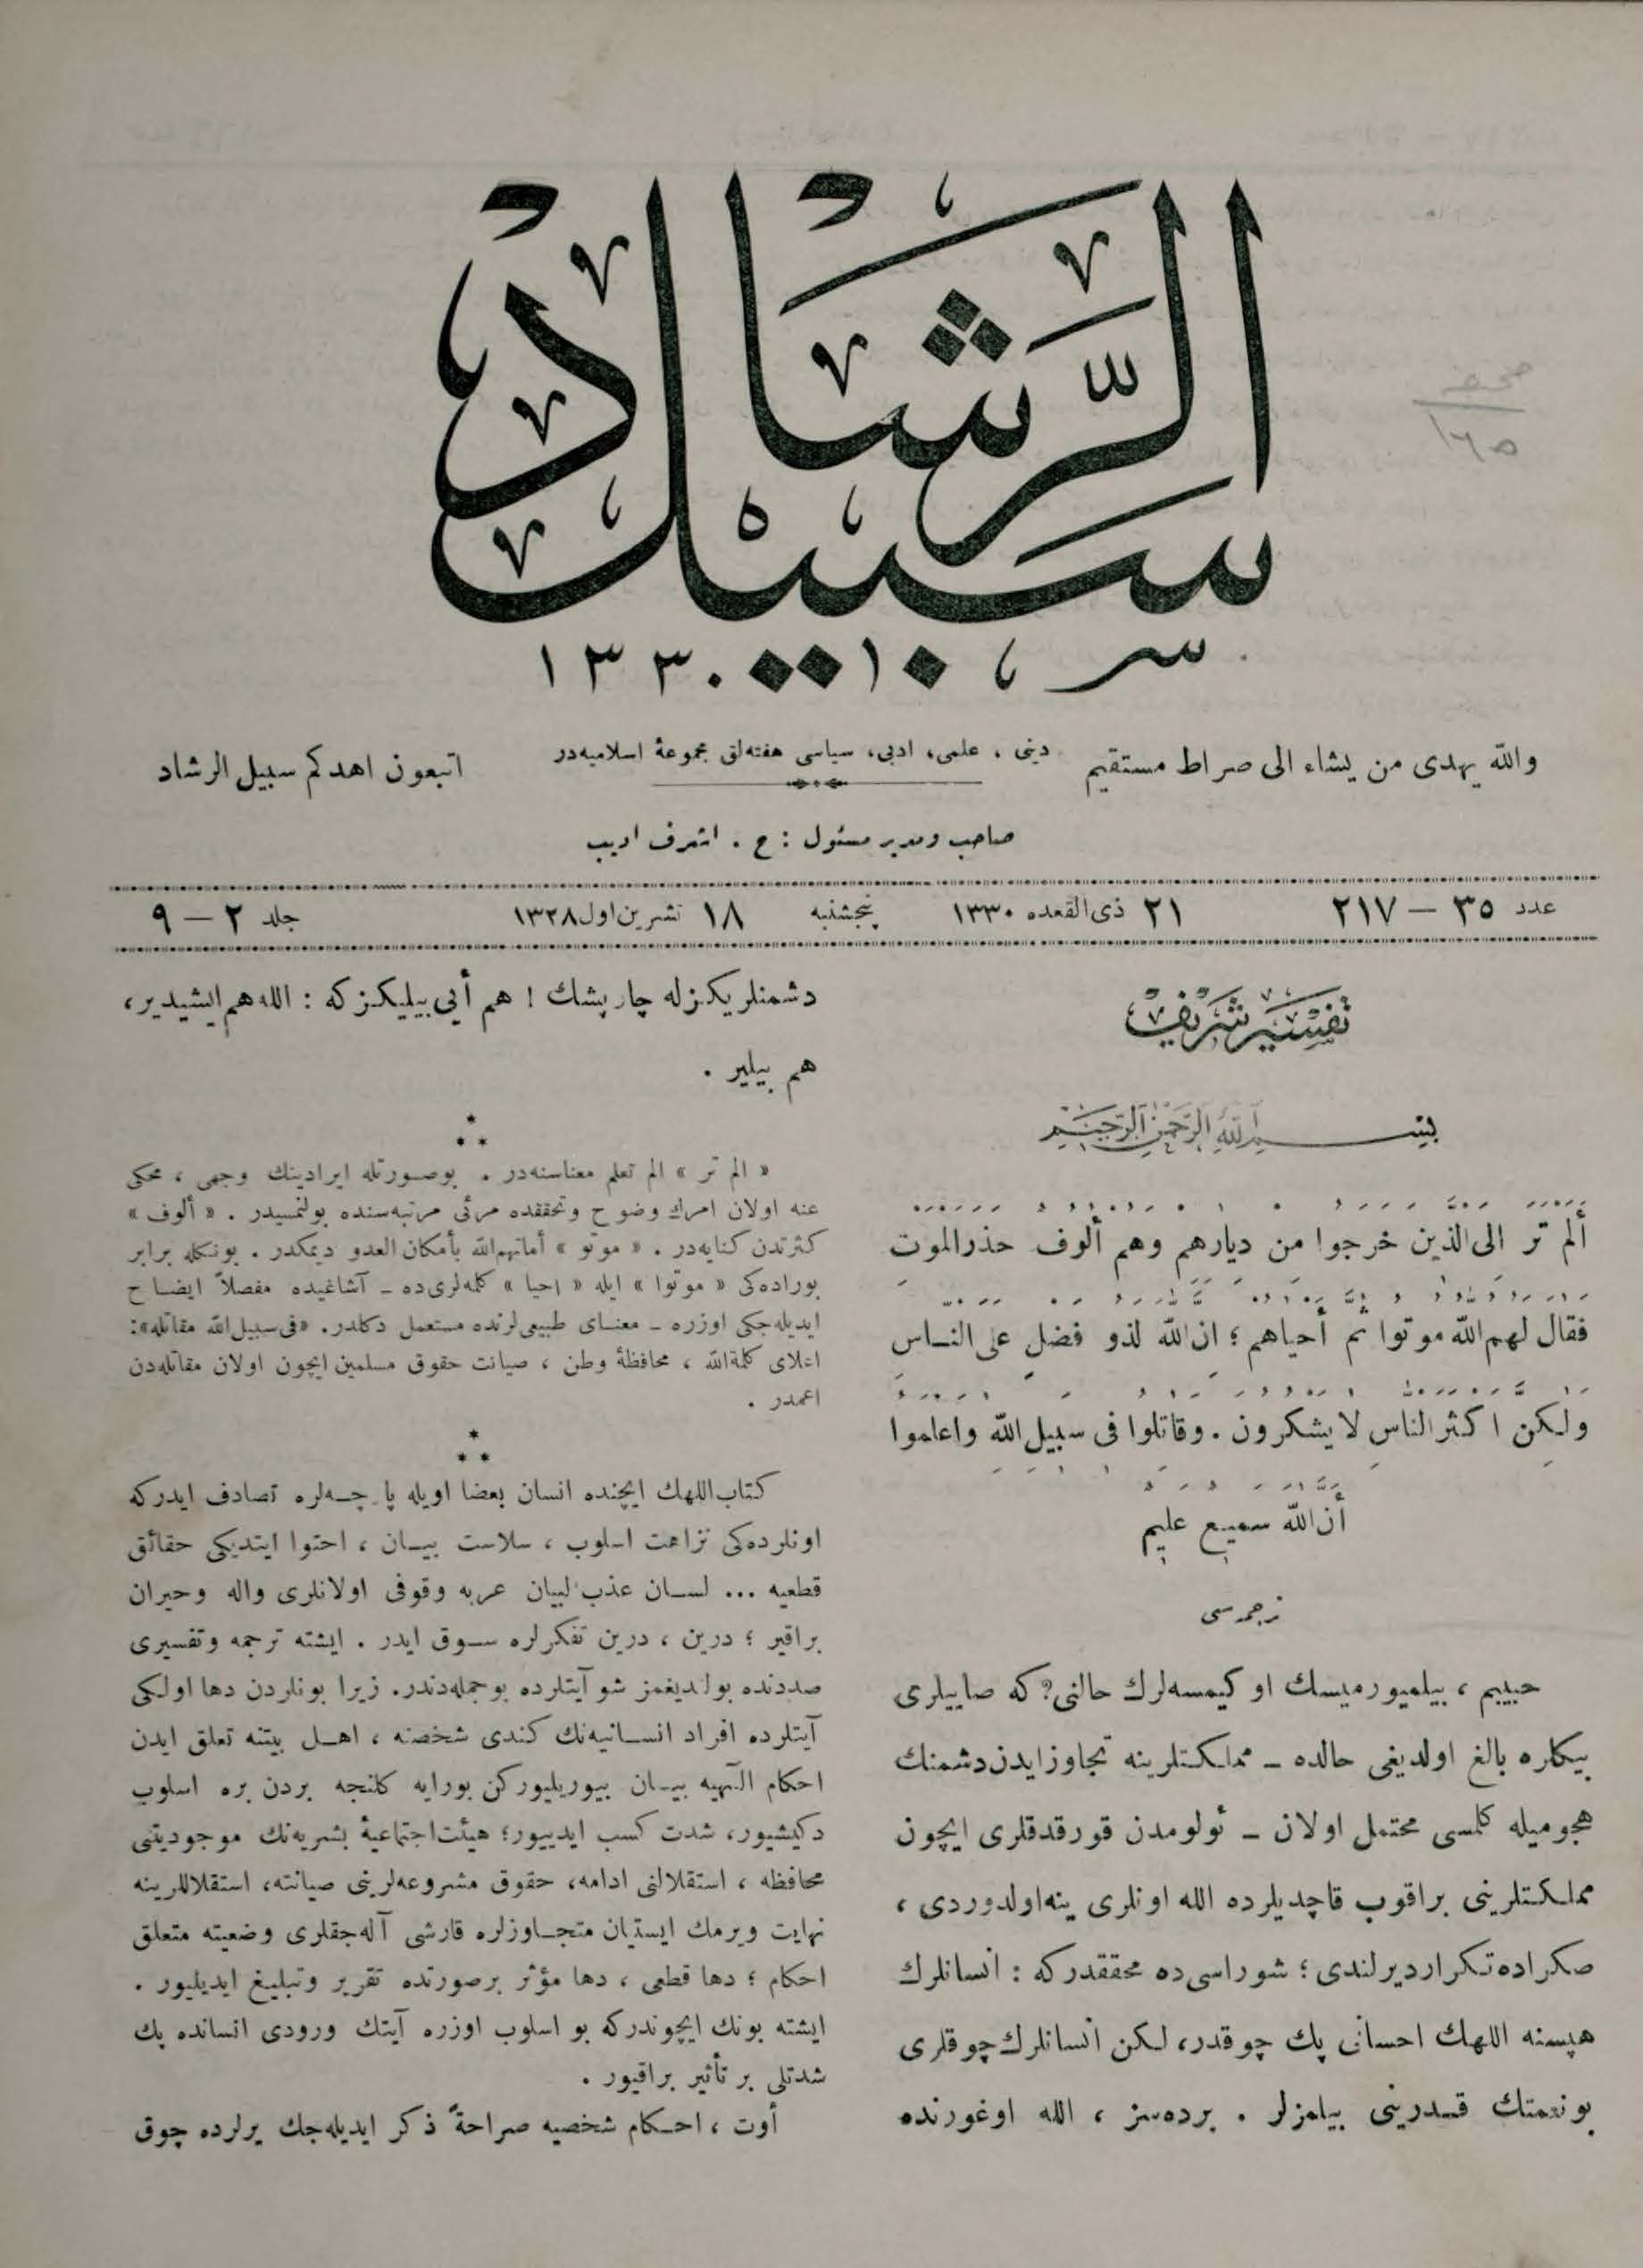 سبيل الرشاد
١٣٣٠
والله يهدى من يشاء الى صراط مستقيم
دينى ، علمى، ادبى، سياسى هفته‌لق مجموعهٔ اسلاميه‌در
اتبعون اهدكم سبيل الرشاد
صاحب ومدير مسئول : ح . اشرف اديب
عدد ٣٥ — ٢١٧
٢١ ذى القعده ١٣٣٠
پنجشنبه
١٨ تشرين اول ١٣٢٨
جلد ٢ — ٩
تفسير شريف
بسم الله الرحمن الرحيم
ألم تر الى الذين خرجوا من ديارهم وهم ألوف حذر الموت
فقال لهم الله موتوا ثم أحياهم ؛ ان الله لذو فضل على النـاس
ولكن اكثر الناس لا يشكرون . وقاتلوا فى سبيل الله واعلموا
أن الله سميع عليم
ترجمه‌سى
حبيبم ، بيلميورميسك او كيمسه‌لرك حالنى؟ كه صاييلرى
بيكلره بالغ اولديغى حالده ــ مملكتلرينه تجاوز ايدن دشمنك
هجوميله كلمسى محتمل اولان ــ ئولومدن قورقدقلرى ايچون
مملكتلرينى براقوب قاچديلرده الله اونلرى ينه اولدوردى ،
صكراده تكرار ديرلندى ؛ شوراسى ده محققدركه : انسانلرك
هپسنه اللهك احسانى پك چوقدر، لكن انسانلرك چوقلرى
بو نعمتك قـدرينى بيلمزلر . برده سز ، الله اوغورنده
دشمنلريكزله چارپشك ! هم أيى بيليكز كه : الله هم ايشيدير،
هم بيلير .
« الم تر » الم تعلم معناسنه‌در . بوصورتله ايرادينك وجهى ، محكى
عنه اولان امرك وضوح وتحققده مرئى مرتبه‌سنده بولنمسيدر . « ألوف »
كثرتدن كنايه‌در . « موتو » أماتهم الله بأمكان العدو ديمكدر . بونكله برابر
بوراده‌كى « موتوا » ايله « احيا » كلمه‌لرى ده ــ آشاغيده مفصلاً ايضـاح
ايديله‌جكى اوزره ــ معنـاى طبيعى لرنده مستعمل دكلدر. «فى سبيل الله مقاتله»:
اعلاى كلمةالله ، محافظهٔ وطن ، صيانت حقوق مسلمين ايچون اولان مقاتله‌دن
اعمدر .
كتاب اللهك ايچنده انسان بعضا اويله پارچـه‌لره تصادف ايدركه
اونلرده‌كى نزاهت اسلوب ، سلاست بيـان ، احتوا ايتديكى حقائق
قطعيه ... لسـان عذب البيان عربه وقوفى اولانلرى واله وحيران
براقير ؛ درين ، درين تفكرلره سـوق ايدر . ايشته ترجمه وتفسيرى
صددنده بولنديغمز شو آيتلرده بوجمله‌دندر. زيرا بونلردن دها اولكى
آيتلرده افراد انسـانيه‌نك كندى شخصنه ، اهـل بيتنه تعلق ايدن
احكام الٓهيه بيـان بيوريليوركن بورايه كلنجه بردن بره اسلوب
دكيشيور، شدت كسب ايدييور؛ هيئت اجتماعيهٔ بشريه‌نك موجوديتنى
محافظه ، استقلالنى ادامه، حقوق مشروعه‌لرينى صيانته، استقلاللرينه
نهايت ويرمك ايستيان متجـاوزلره قارشى آله‌جقلرى وضعيته متعلق
احكام ؛ دها قطعى ، دها مؤثر برصورتده تقرير وتبليغ ايديليور .
ايشته بونك ايچوندركه بو اسلوب اوزره آيتك ورودى انسانده پك
شدتلى بر تأثير براقيور .
أوت ، احـكام شخصيه صراحةً ذكر ايديله‌جك يرلرده چوق